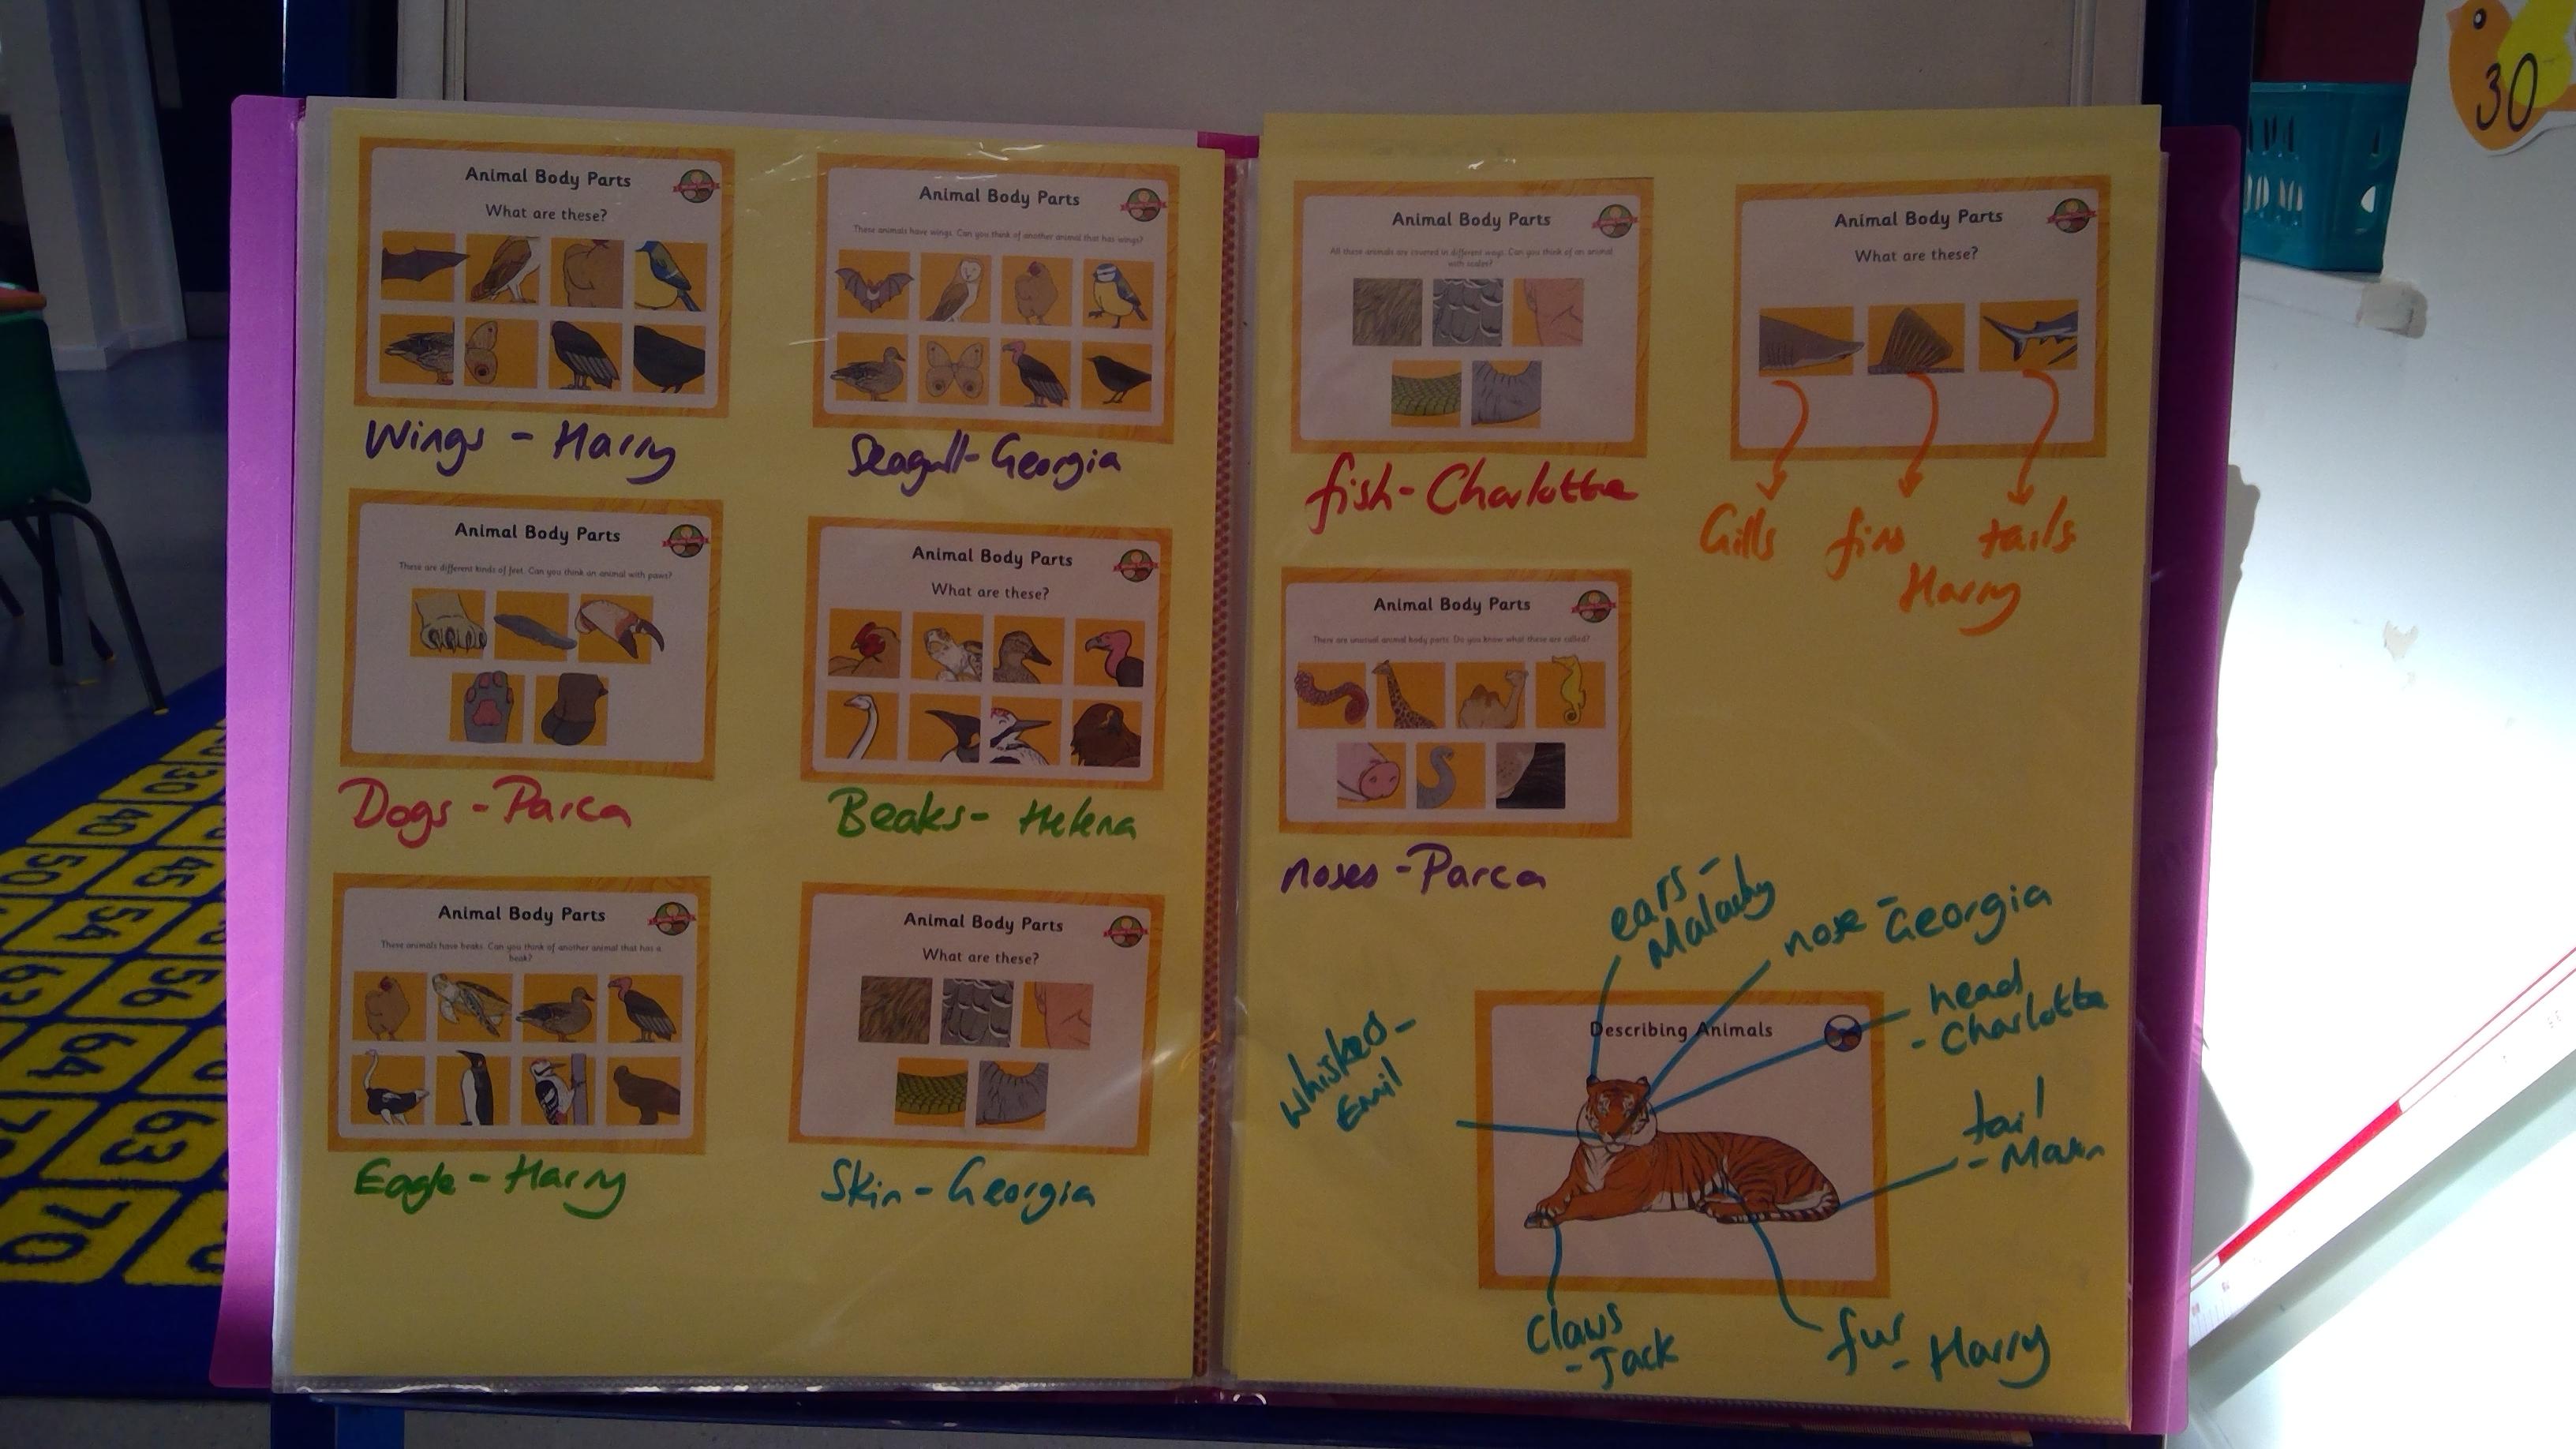 Animal Body Parts
What are these?
Wings - Harry
Animal Body Parts
These animals have wings. Can you think of another animal that has wings?
Seagull - Georgia
Animal Body Parts
These are different kinds of feet. Can you think an animal with paws?
Dogs - Parca
Animal Body Parts
What are these?
Beaks - Helena
Animal Body Parts
These animals have beaks. Can you think of another animal that has a
beak?
Eagle - Harry
Animal Body Parts
What are these?
Skin - Georgia
Animal Body Parts
All these animals are covered in different ways. Can you think of an animal
with scales?
fish - Charlotte
Animal Body Parts
What are these?
Gills fins tails
Harry
Animal Body Parts
There are unusual animal body parts. Do you know what these are called?
noses - Parca
ears -
Malachy
nose - Georgia
head
- Charlotte
whiskers -
Emil
Describing Animals
tail
-
claws
- Jack
fur
- Harry
30
30
40
50
45
54
63
56
64
63
70